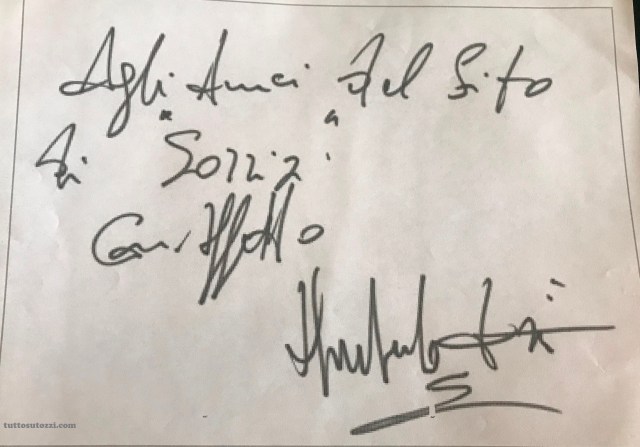 Agli Amici del Sito
di Sozzi
Con Affetto
tuttosutozzi.com